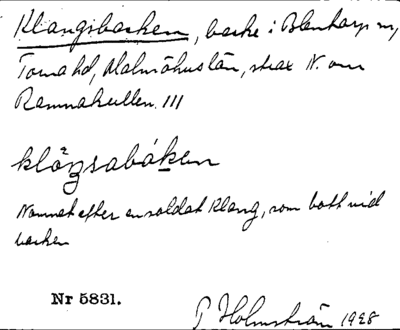 Klangsbacken, backe i Blentarp sn,
Torna hd, Malmöhus län, strax N. om
Ramnakullen. III
klåŋsabáken
Namnet efter en soldat Klang, som bott vid
backen
Nr 5831.
P Holmström 1928